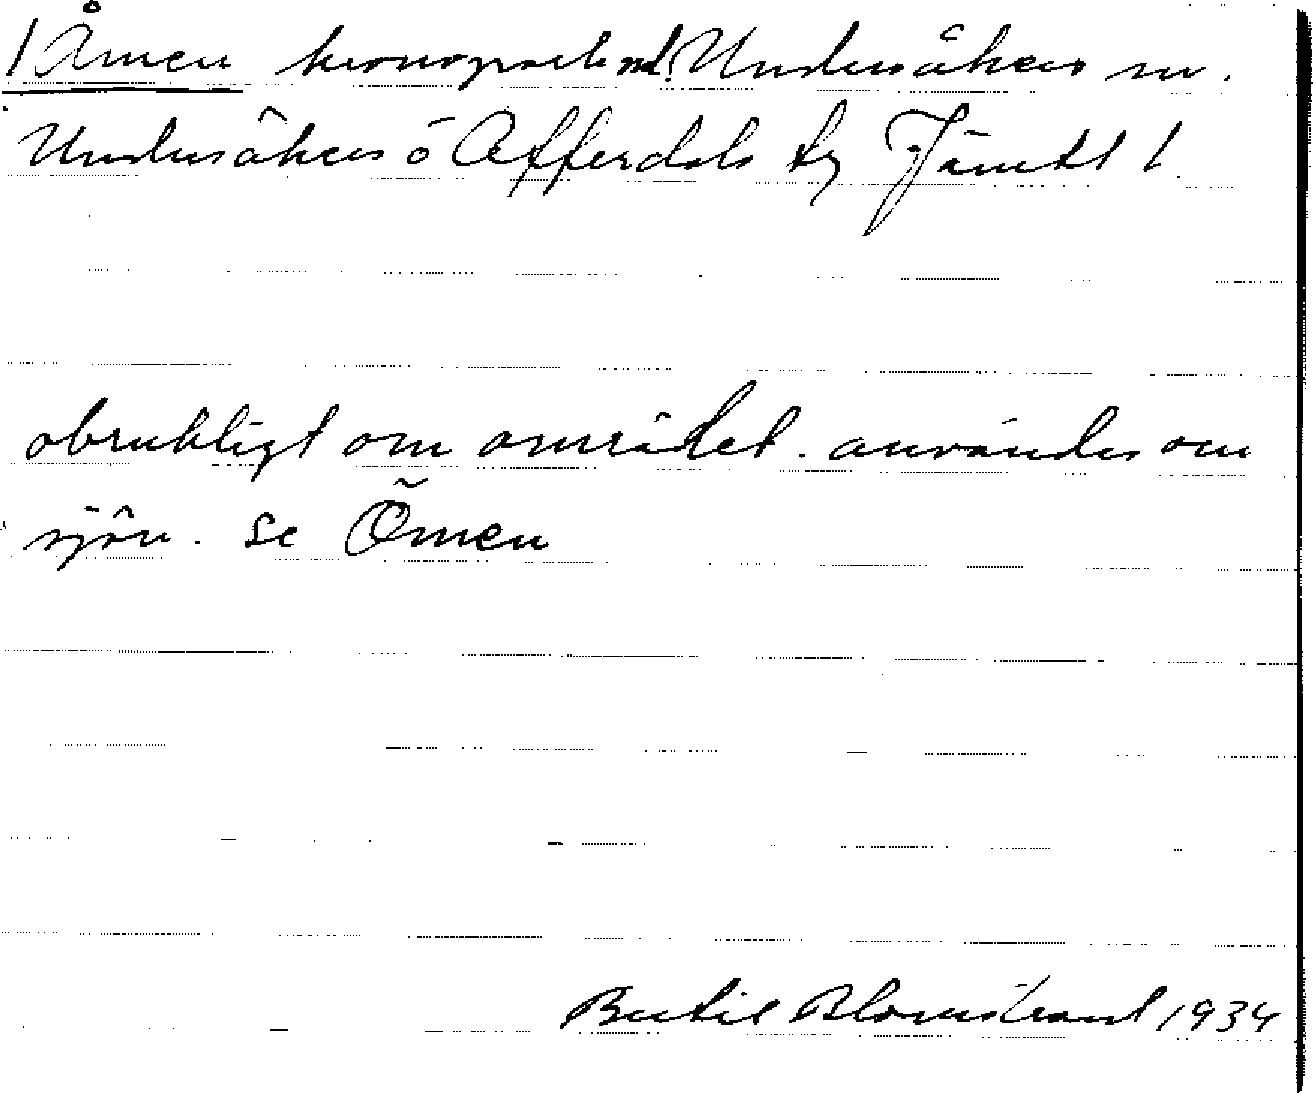 / Åmen kronopark nd! Undersåkers sn.
Undersåkers o Offerdals tg Jämtl l.
obrukligt om området. användes om
sjön. Se Õmen
Bertil Blomstrand 1934